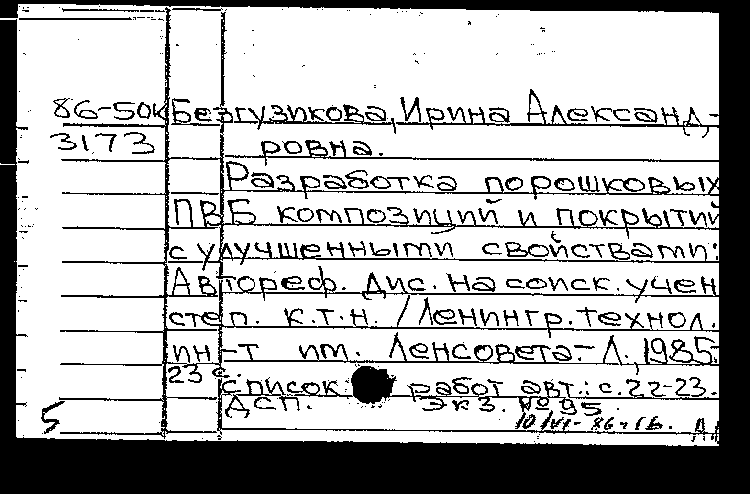 86-50к Безгузикова, Ирина Александ-
3173 ровна.
Разработка порошковых
ПВБ композиций и покрытий
с улучшенными свойствами:
Автореф. дис. на соиск. учен
степ. к.т.н. / Ленингр. технол.
ин-т им. Ленсовета.- Л., 1985.
23 с. Список работ авт.: с. 22-23.
ДСП. Экз. № 95
5 10/VI-86-